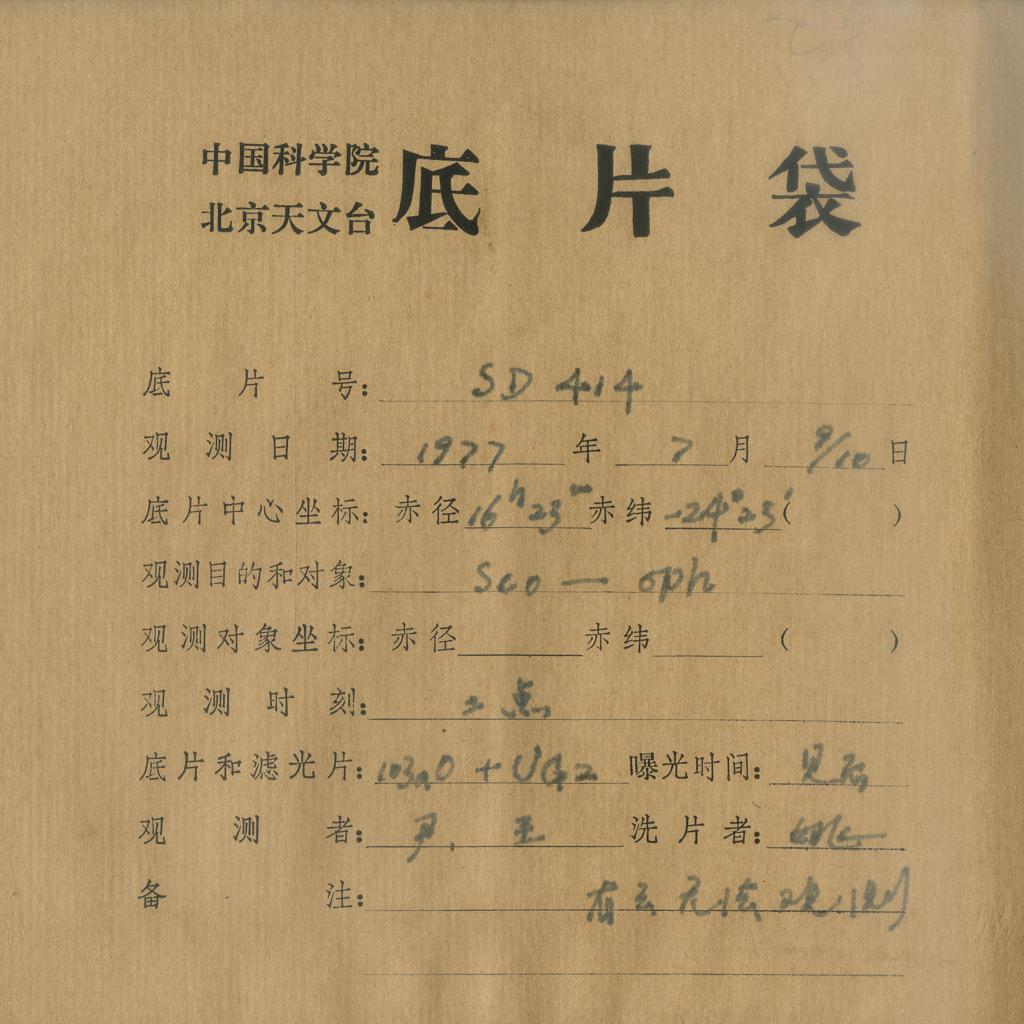 中国科学院
北京天文台
底片袋
底片号: SD 414
观测日期: 1977年 7月 9/10日
底片中心坐标: 赤径 16h23m 赤纬 -24°23′( )
观测目的和对象: Sco — oph
观测对象坐标: 赤径 赤纬 ( )
观测时刻: 2点
底片和滤光片: 103aO + UG2 曝光时间: 见后
观测者: 尹、王 洗片者:
备注: 有云无法观测